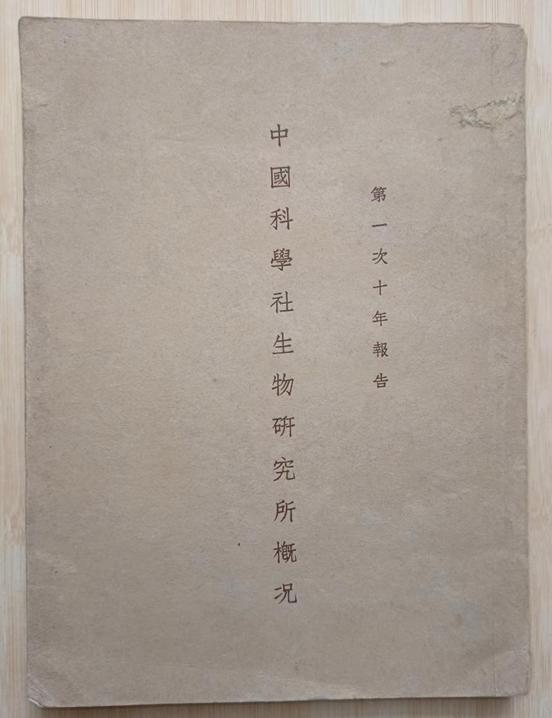 第一次十年報告
中國科學社生物研究所概况